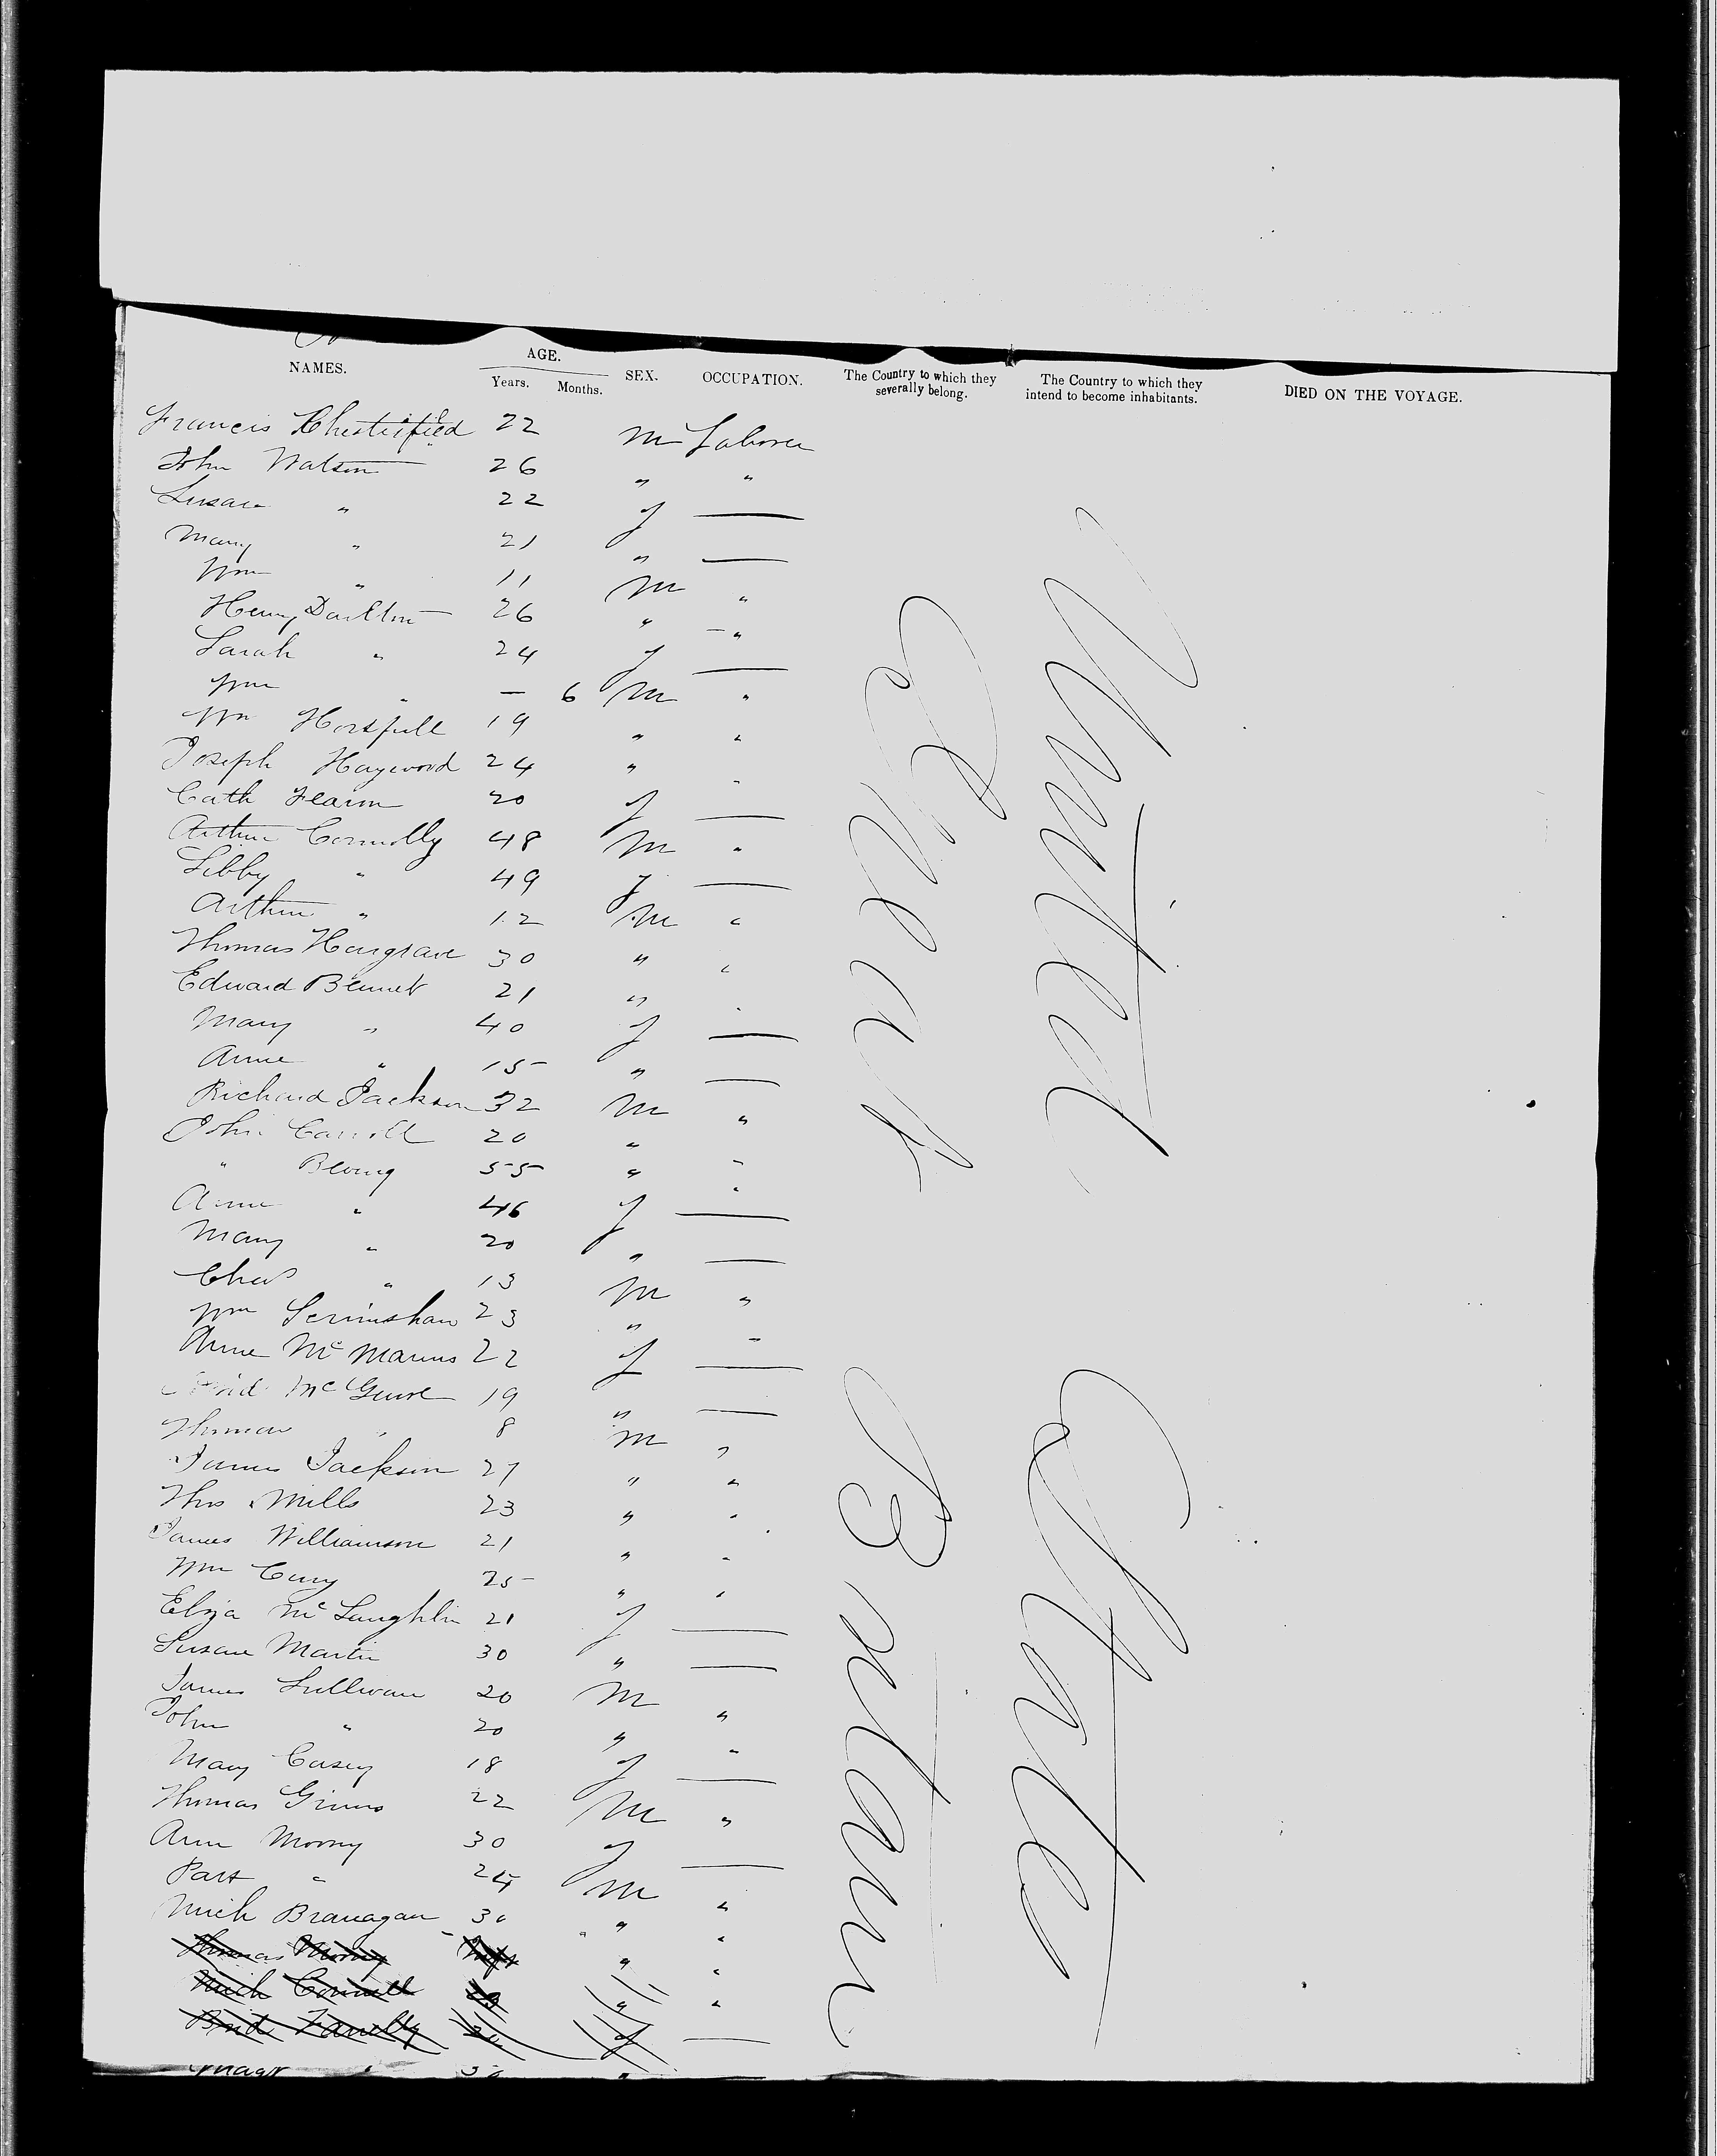 NAMES. AGE. SEX. OCCUPATION. The Country to which they severally belong. The Country to which they intend to become inhabitants. DIED ON THE VOYAGE.
Years. Months.
Francis Chesterfield 22 M Laborer
John Watson 26 " "
Susan " 22 f —
Mary " 21 " —
Wm " 11 M "
Henry Darlton 26 " "
Sarah " 24 f —
Wm " — 6 M "
Wm Horsfull 19 " "
Joseph Haywood 24 " "
Cath 20 f —
Arthur Connolly 48 M "
Libby " 49 f —
Arthur " 12 M "
Thomas Hargrave 30 " "
Edward Bennet 21 " "
Mary " 40 f —
Anne " 15 " —
Richard Jackson 32 M "
John Carroll 20 " "
" 55 " "
Anne " 46 f —
Mary " 20 " —
Chas " 13 M "
Wm Scrimshaw 23 " "
Anne McManus 22 f —
McGuire 19 " —
Thomas " 8 M "
James Jackson 27 " "
Thos Mills 23 " "
James Williamson 21 " "
Wm 25 " "
Eliza McLaughlin 21 f —
Susan Martin 30 " —
James Sullivan 20 M "
John " 20 " "
Mary Casey 18 f —
Thomas Grimes 22 M "
Ann Morny 30 f —
Patt " 24 M "
Mich Branagan 30 " "
Thomas Morny " "
Mich Connell " "
Brid f —
Great Britain
United States